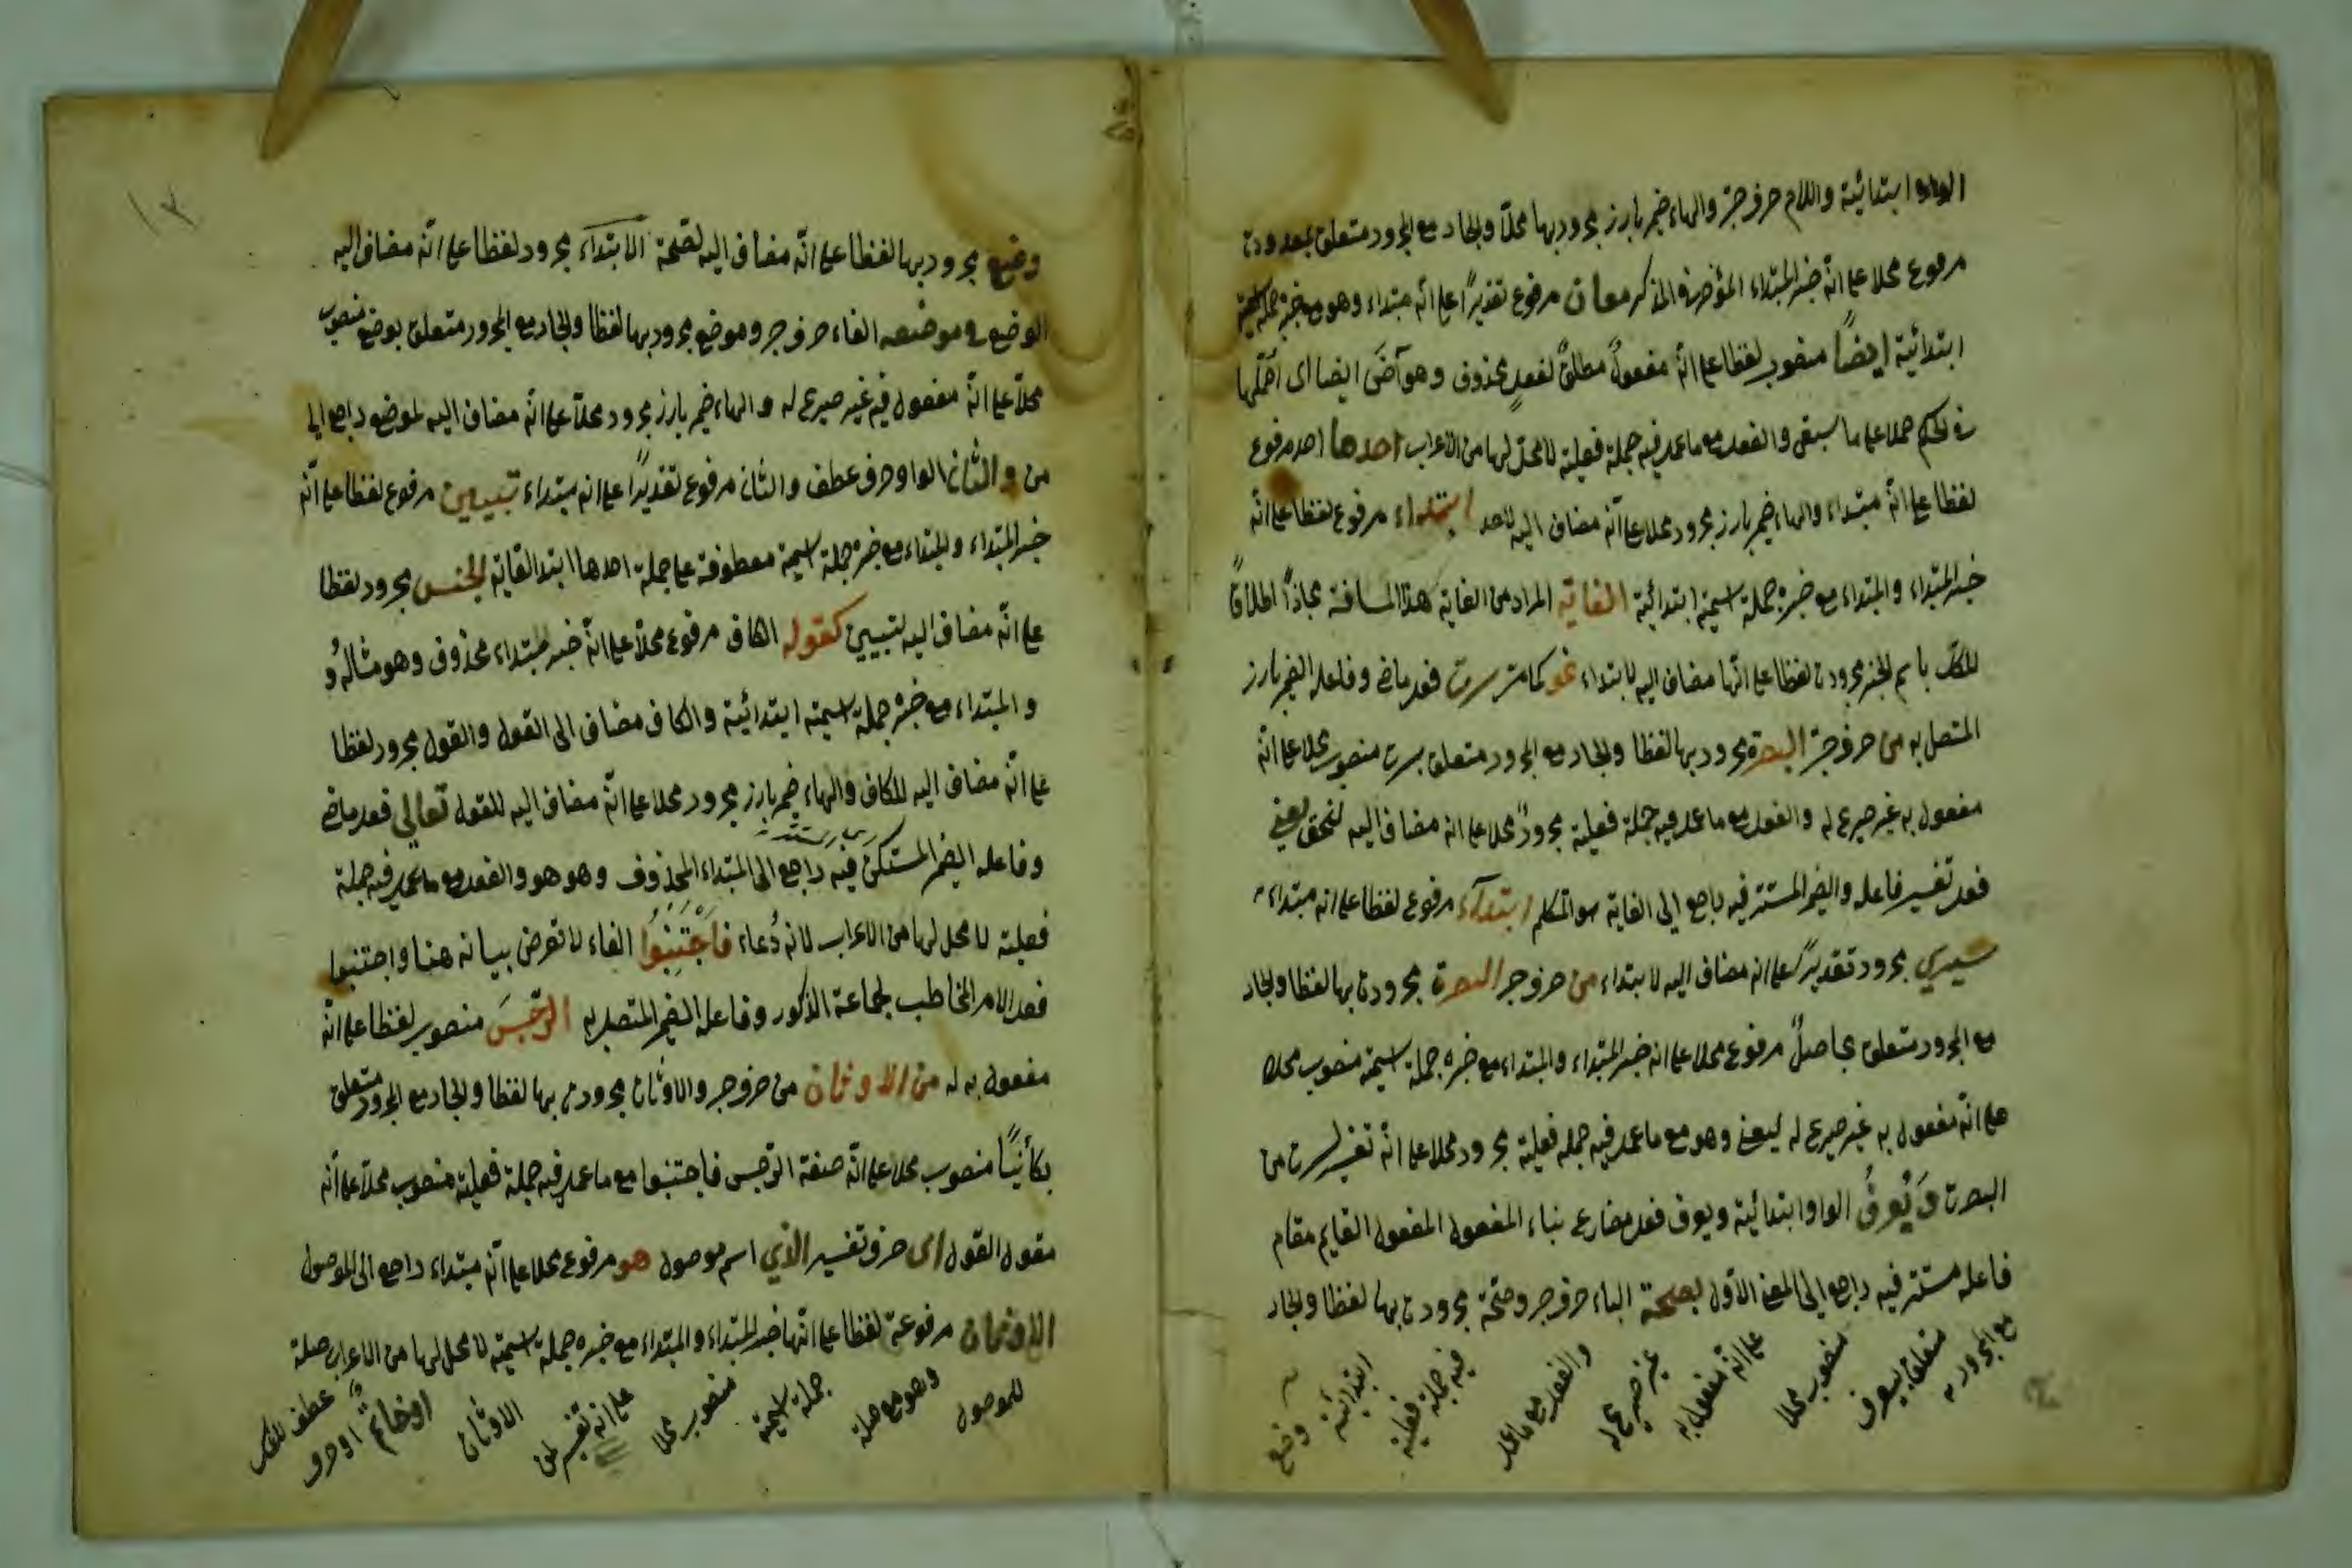 الواو ابتدائية واللام حرف جر والهاء ضمير بارز مجرور بها محلا والجار مع المجرور متعلق بمعدودن
مرفوع محلا على انه خبر المبتداء المؤخر في الذكر معان مرفوع تقديرًا على انه مبتداء وهو مع خبره جملة اسمية
ابتدائية ايضًا منصوب لفظا على انه مفعولٌ مطلقٌ لفعلٍ محذوف وهو آضَ ايضا اى
في الحكم حملا على ما سبق والفعل مع ما عمل فيه جملة فعلية لا محل لها من الاعراب احدها احد مرفوع
لفظا على انه مبتداء والهاء ضمير بارز مجرور محلا على انه مضاف اليه لاحد ابتداء مرفوع لفظا على انه
خبر المبتداء والمبتداء مع خبره جملة اسمية ابتدائية الغاية المراد من الغاية هذا المسافة مجازًا اطلاقًا
للكل باسم الجزء مجرورة لفظا على انها مضاف اليه لابتداء نحو كما مر سرت فعل ماض وفاعله الضمير بارز
المتصل به من حرف جر البصرة مجرور بها لفظا والجار مع المجرور متعلق بسرت منصوب محلا على انه
مفعول به غير صريح له والفعل مع ما عمل فيه جملة فعلية مجرورٌ محلا على انه مضاف اليه لنحو يعني
فعل تفسير فاعله والضمير المستتر فيه راجع الى الغاية هو المتكلم ابتداء مرفوع لفظا على انه مبتداء
سيري مجرور تقديرًا على انه مضاف اليه لابتداء من حرف جر البصرة مجرورة بها لفظا والجار
مع المجرور متعلق بحاصلٌ مرفوع محلا على انه خبر المبتداء والمبتداء مع خبره جملة اسمية منصوب محلا
على انه مفعول به غير صريح له ليعني وهو مع ما عمل فيه جملة فعلية مجرور محلا على انه تفسير لسرت من
البصرة وَيُعرفُ الواو ابتدائية ويعرف فعل مضارع بناء المفعول المفعول القايم مقام
فاعله مستتر فيه راجع الى المعنى الاول بصحة الباء حرف جر وصحة مجرورة بها لفظا والجار
مع المجرور به متعلق بيعرف منصوب محلا على انه مفعول به غير صريح له والفعل مع ما عمل فيه جملة فعلية ابتدائية وضع
وضع مجرور بها لفظا على انه مضاف اليه لصحة الابتداء مجرور لفظا على انه مضاف اليه
الوضع في موضعه الفاء حرف جر وموضع مجرور بها لفظا والجار مع المجرور متعلق بوضع منصوب
محلا على انه مفعول فيه غير صريح له والهاء ضمير بارز مجرور محلا على انه مضاف اليه لموضع راجع الى
من والثاني الواو حرف عطف والثان مرفوع تقديرًا على انه مبتداء تبيين مرفوع لفظا على انه
خبر المبتداء والمبتداء مع خبره جملة اسمية معطوفة على جملة احدها ابتدا الغاية الجنس مجرور لفظا
على انه مضاف اليه لتبيين كقوله الكاف مرفوع محلا على انه خبر مبتداء محذوف وهو مثالهُ
والمبتداء مع خبره جملة اسمية ابتدائية والكاف مضاف الى القول والقول مجرور لفظا
على انه مضاف اليه للكاف والهاء ضمير بارز مجرور محلا على انه مضاف اليه للقول تعالى فعل ماض
وفاعله الضمير المستكن فيه راجع الى المبتداء المحذوف وهو هو والفعل مع ما عمل فيه جملة
فعلية لا محل لها من الاعراب لانه دُعاء فَاجْتَنِبُوا الفاء لا تعرض بيانه هنا واجتنبوا
فعل الامر المخاطب لجماعة الذكور وفاعله الضمير المتصل به الرّجسَ منصوب لفظا على انه
مفعول به له من الاوثان من حرف جر والاوثان مجرورة بها لفظا والجار مع المجرور متعلق
بكائنًا منصوب محلا على انه صفة الرجس فاجتنبوا مع ما عمل فيه جملة فعلية منصوب محلا على انه
مقول القول اى حرف تفسير الذي اسم موصول هو مرفوع محلا على انه مبتداء راجع الى الموصول
الاوثان مرفوعة لفظا على انها خبر المبتداء والمبتداء مع خبره جملة اسمية لا محل لها من الاعراب صلة
للموصول وهو مع صلة جملة اسمية منصوب محلا على انه تفسير لمن الاوثان او خاتم او حرف عطف